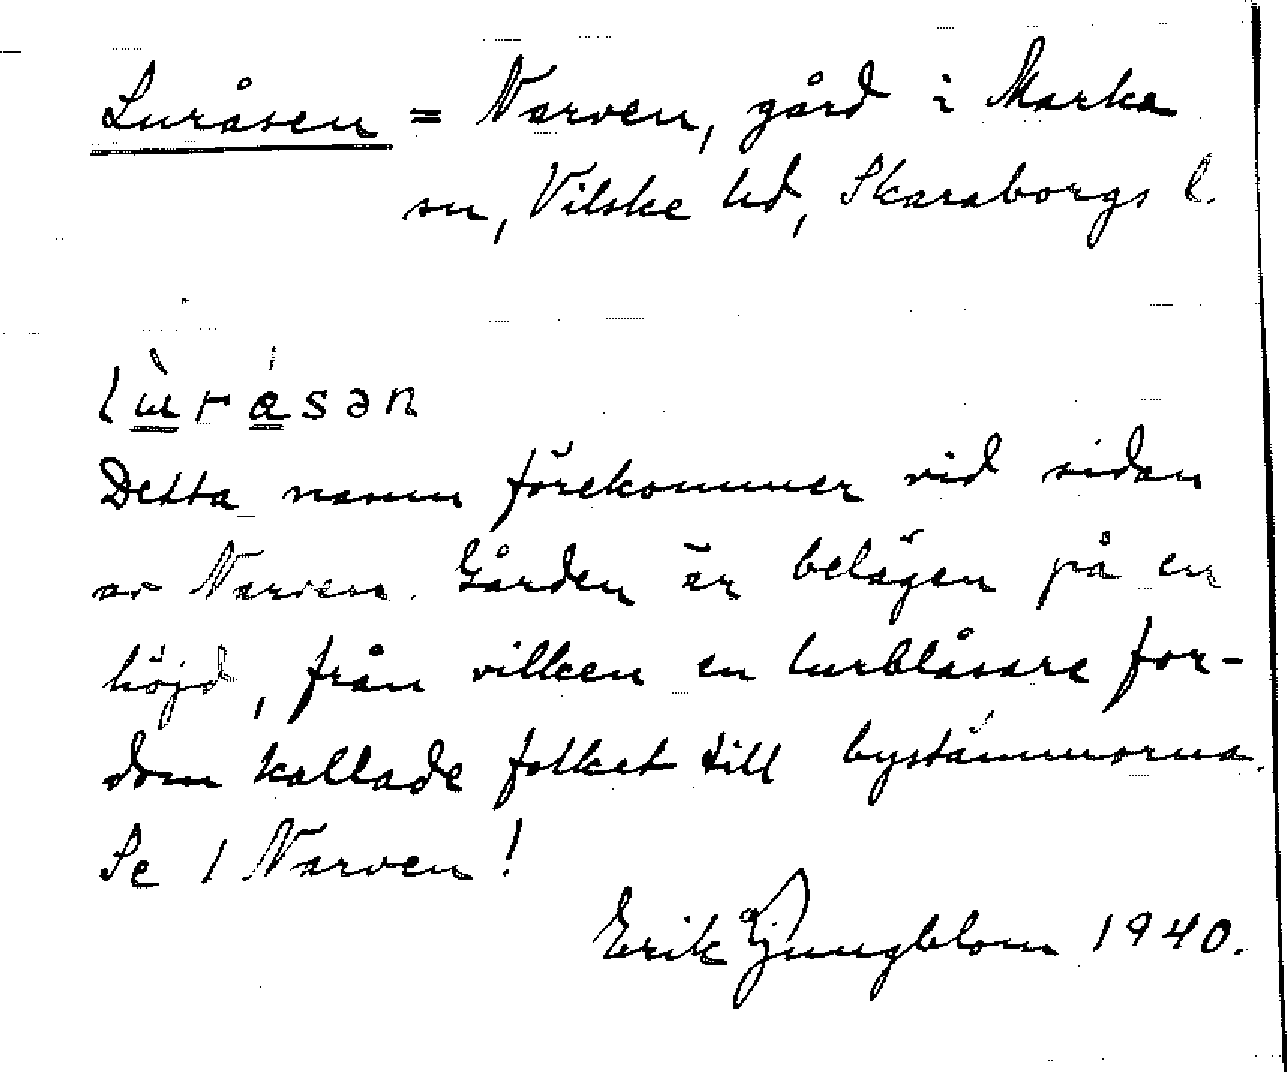 Luråsen = Narven, gård i Marka
sn, Vilske hd, Skaraborgs l.
lù̳rá̳sən
Detta namn förekommer vid sidan
av Narven. Gården är belägen på en
höjd, från vilken en lurblåsare for-
dom kallade folket till bystämmorna.
Se 1 Narven!
Erik Ljungblom 1940.